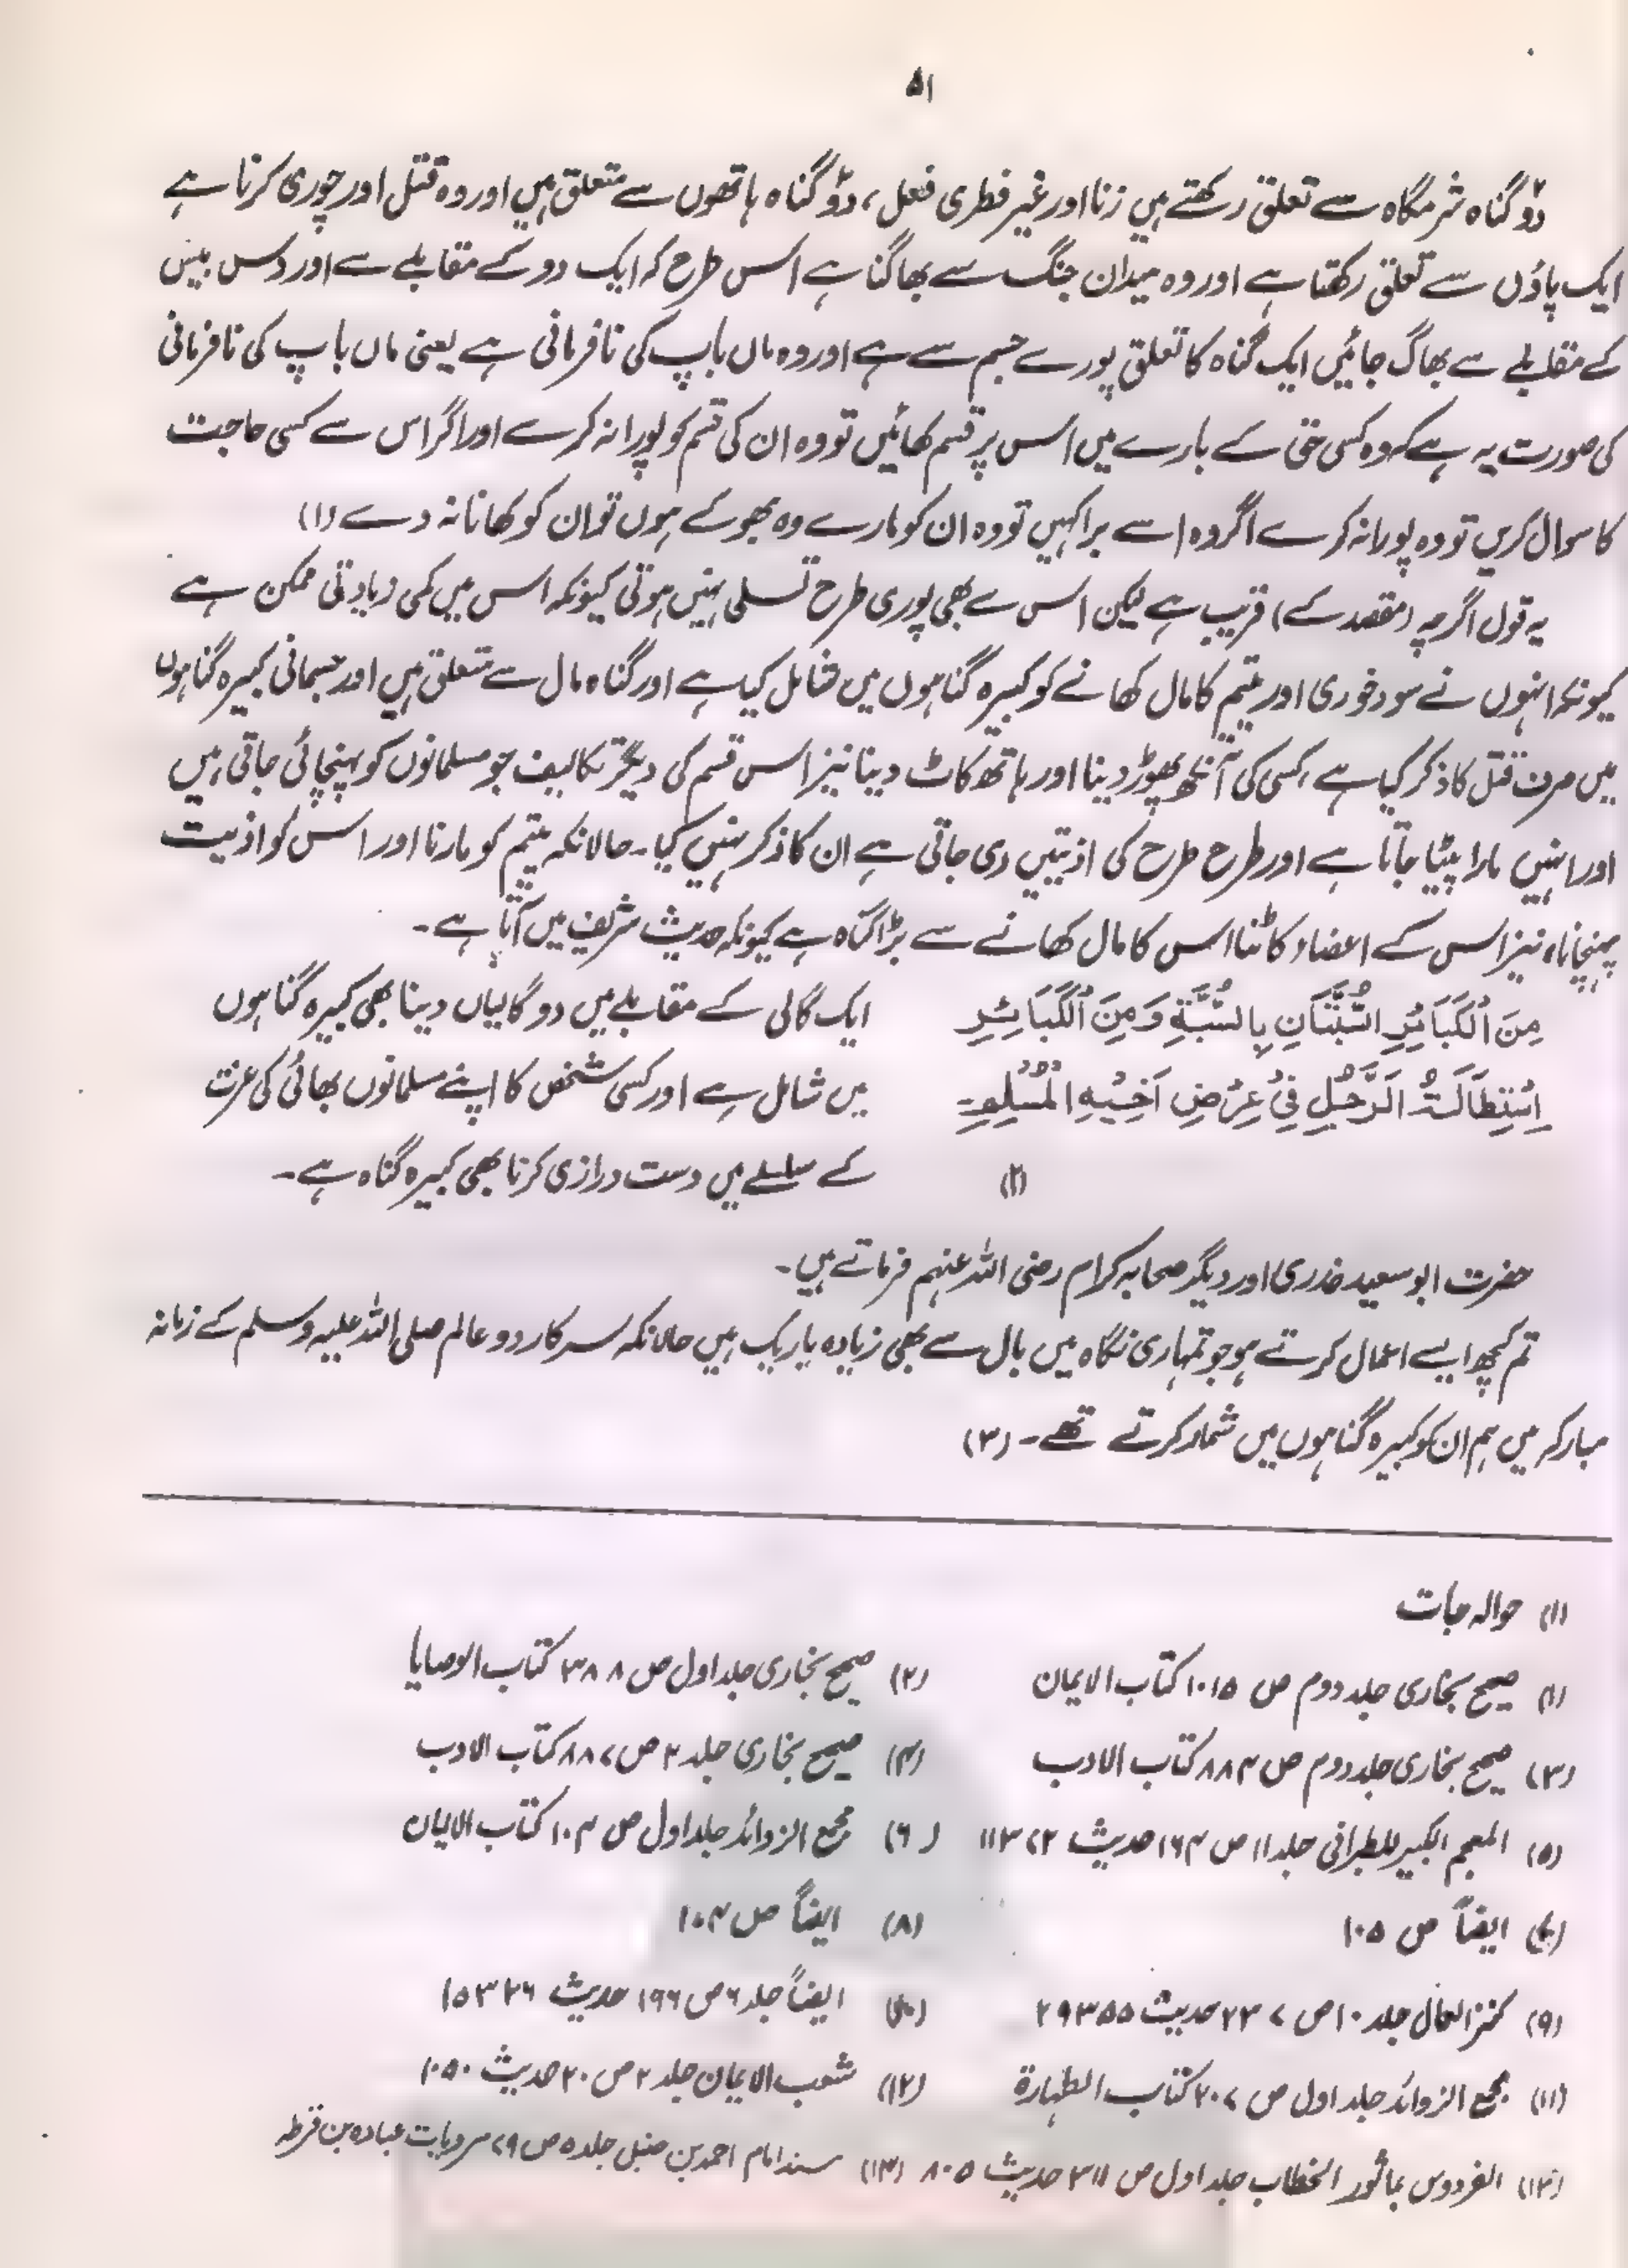 ۵۱
دوؔ گناہ شرمگاہ سے تعلق رکھتے ہیں زنا اور غیر فطری فعل، دوؔ گناہ ہاتھوں سے متعلق ہیں اور وہ قتل اور چوری کرنا ہے
ایک پاؤں سے تعلق رکھتا ہے اور وہ میدان جنگ سے بھاگنا ہے اس طرح کہ ایک دو کے مقابلے سے اور دس بیس
کے مقابلے سے بھاگ جائیں ایک گناہ کا تعلق پورے جسم سے ہے اور وہ ماں باپ کی نافرمانی ہے یعنی ماں باپ کی نافرمانی
کی صورت یہ ہے کہ وہ کسی حق کے بارے میں اس پر قسم کھائیں تو وہ ان کی قسم کو پورا نہ کرے اور اگر اس سے کسی حاجت
کا سوال کریں تو وہ پورا نہ کرے اگر وہ اسے برا کہیں تو وہ ان کو مارے وہ بھوکے ہوں تو ان کو کھانا نہ دے (۱)
یہ قول اگرچہ (مقصد کے) قریب ہے لیکن اس سے بھی پوری طرح تسلی نہیں ہوتی کیونکہ اس میں کمی زیادتی ممکن ہے
کیونکہ انہوں نے سود خوری اور یتیم کا مال کھانے کو کبیرہ گناہوں میں شامل کیا ہے اور گناہ مال سے متعلق ہیں اور جسمانی کبیرہ گناہوں
میں صرف قتل کا ذکر کیا ہے، کسی کی آنکھ پھوڑ دینا اور ہاتھ کاٹ دینا نیز اس قسم کی دیگر تکالیف جو مسلمانوں کو پہنچائی جاتی ہیں
اور انہیں مارا پیٹا جاتا ہے اور طرح طرح کی اذیتیں دی جاتی ہے ان کا ذکر نہیں کیا۔ حالانکہ یتیم کو مارنا اور اس کو اذیت
پہنچانا، نیز اس کے اعضاء کاٹنا اس کا مال کھانے سے بڑا گناہ ہے کیونکہ حدیث شریف میں آتا ہے۔
مِنَ الْكَبَائِرِ السَّبَّتَانِ بِالسَّبَّةِ وَمِنَ الْكَبَائِرِ ایک گالی کے مقابلے میں دو گالیاں دینا بھی کبیرہ گناہوں
اِسْتِطَالَةُ الرَّجُلِ فِيْ عِرْضِ اَخِيْهِ الْمُسْلِمِ۔ میں شامل ہے اور کسی شخص کا اپنے مسلمانوں بھائی کی عزت
(۲) کے سلسلے میں دست درازی کرنا بھی کبیرہ گناہ ہے۔
حضرت ابو سعید خدری اور دیگر صحابہ کرام رضی اللہ عنہم فرماتے ہیں۔
تم کچھ ایسے اعمال کرتے ہو جو تمہاری نگاہ میں بال سے بھی زیادہ باریک ہیں حالانکہ سرکار دو عالم صلی اللہ علیہ وسلم کے زمانہ
مبارکہ میں ہم ان کو کبیرہ گناہوں میں شمار کرتے تھے۔ (۳)
(۱) حوالہ جات
(۱) صحیح بخاری جلد دوم ص ۱۰۱۵ کتاب الایمان (۲) صحیح بخاری جلد اول ص ۳۸۸ کتاب الوصایا
(۳) صحیح بخاری جلد دوم ص ۸۸۴ کتاب الادب (۴) صحیح بخاری جلد ۲ ص ۸۸۷ کتاب الادب
(۵) المعجم الکبیر للطبرانی جلد ۱۱ ص ۱۶۴ حدیث ۱۱۳۷۲ (۶) مجمع الزوائد جلد اول ص ۱۰۴ کتاب الایمان
(۷) ایضاً ص ۱۰۵ (۸) ایضاً ص ۱۰۴
(۹) کنز العمال جلد ۱۰ ص ۲۳۷ حدیث ۲۹۳۵۵ (۱۰) ایضاً جلد ۶ ص ۱۹۶ حدیث ۱۵۳۲۶
(۱۱) مجمع الزوائد جلد اول ص ۲۰۷ کتاب الطہارۃ (۱۲) شعب الایمان جلد ۲ ص ۲۰ حدیث ۱۰۵۰
(۱۳) الفردوس بماثور الخطاب جلد اول ص ۳۱۱ حدیث ۸۰۵ (۱۳) مسند امام احمد بن حنبل جلد ۵ ص ۷۹ مرویات عبادہ بن قرط